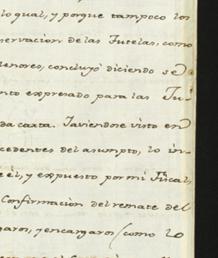 lo qual, y porque tampoco los
servacion de las Tutelas, como
enores, concluyó diciendo se
nto expresado para las Tu-
da carta. Haviendose visto en
cedentes del asumpto, lo in-
e el, y expuesto por mi Fiscal,
Confirmacion del remate del
garon, y encargaron (como lo